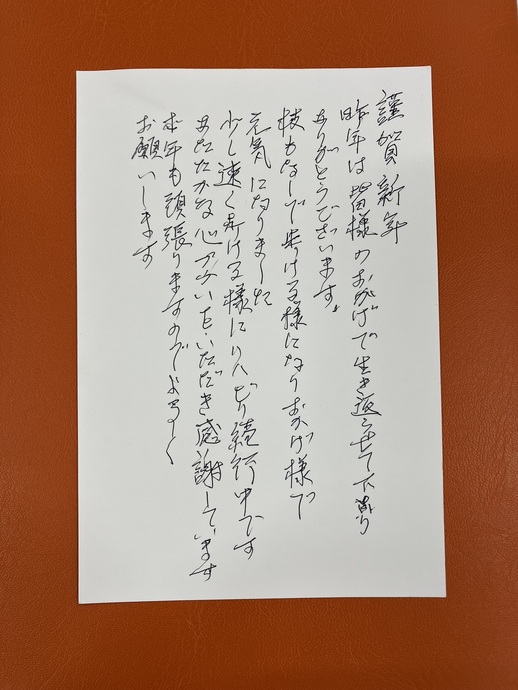 謹賀新年
昨年は皆様のおかげで生き返らせて下さり
ありがとうございます。
杖もなしで歩ける様になりおかげ様で
元気になりました
少し速く歩ける様にリハビリ続行中です
あたたかな心づかいをいただき感謝しています
本年も頑張りますのでよろしく
お願いします